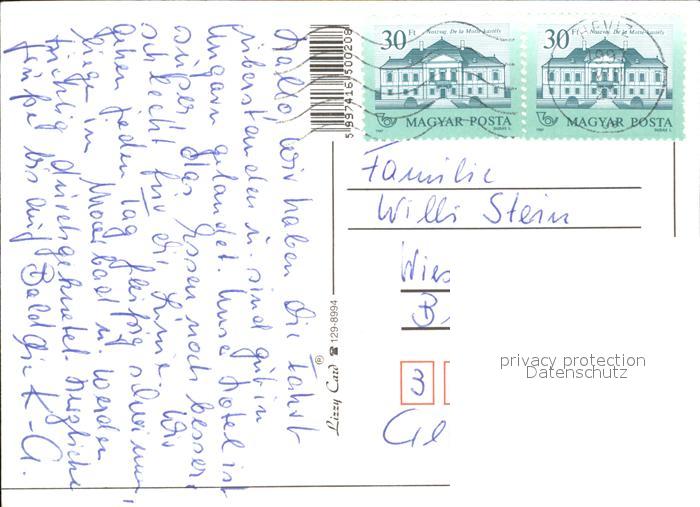 Hallo, wir haben die Fahrt
überstanden u. sind gut in
Ungarn gelandet. Unser Hotel ist
super, das Essen noch besser,
schlecht für die Linie. Wir
gehen jeden Tag fleißig schwimmen,
liegen im Moorbad u. werden
tüchtig durchgeknetet. Herzliche
Grüße bis auf Bald die K-G.
5997416500208
Lizzy Card ® ☎ 129-8994
30 Ft Noszvaj, De la Motte-kastély
MAGYAR POSTA
1987 DUDÁS L.
30 Ft Noszvaj, De la Motte-kastély
MAGYAR POSTA
1987 DUDÁS L.
HÉVÍZ
Familie
Willi Stein
Wies
B
3
Ge
privacy protection
Datenschutz